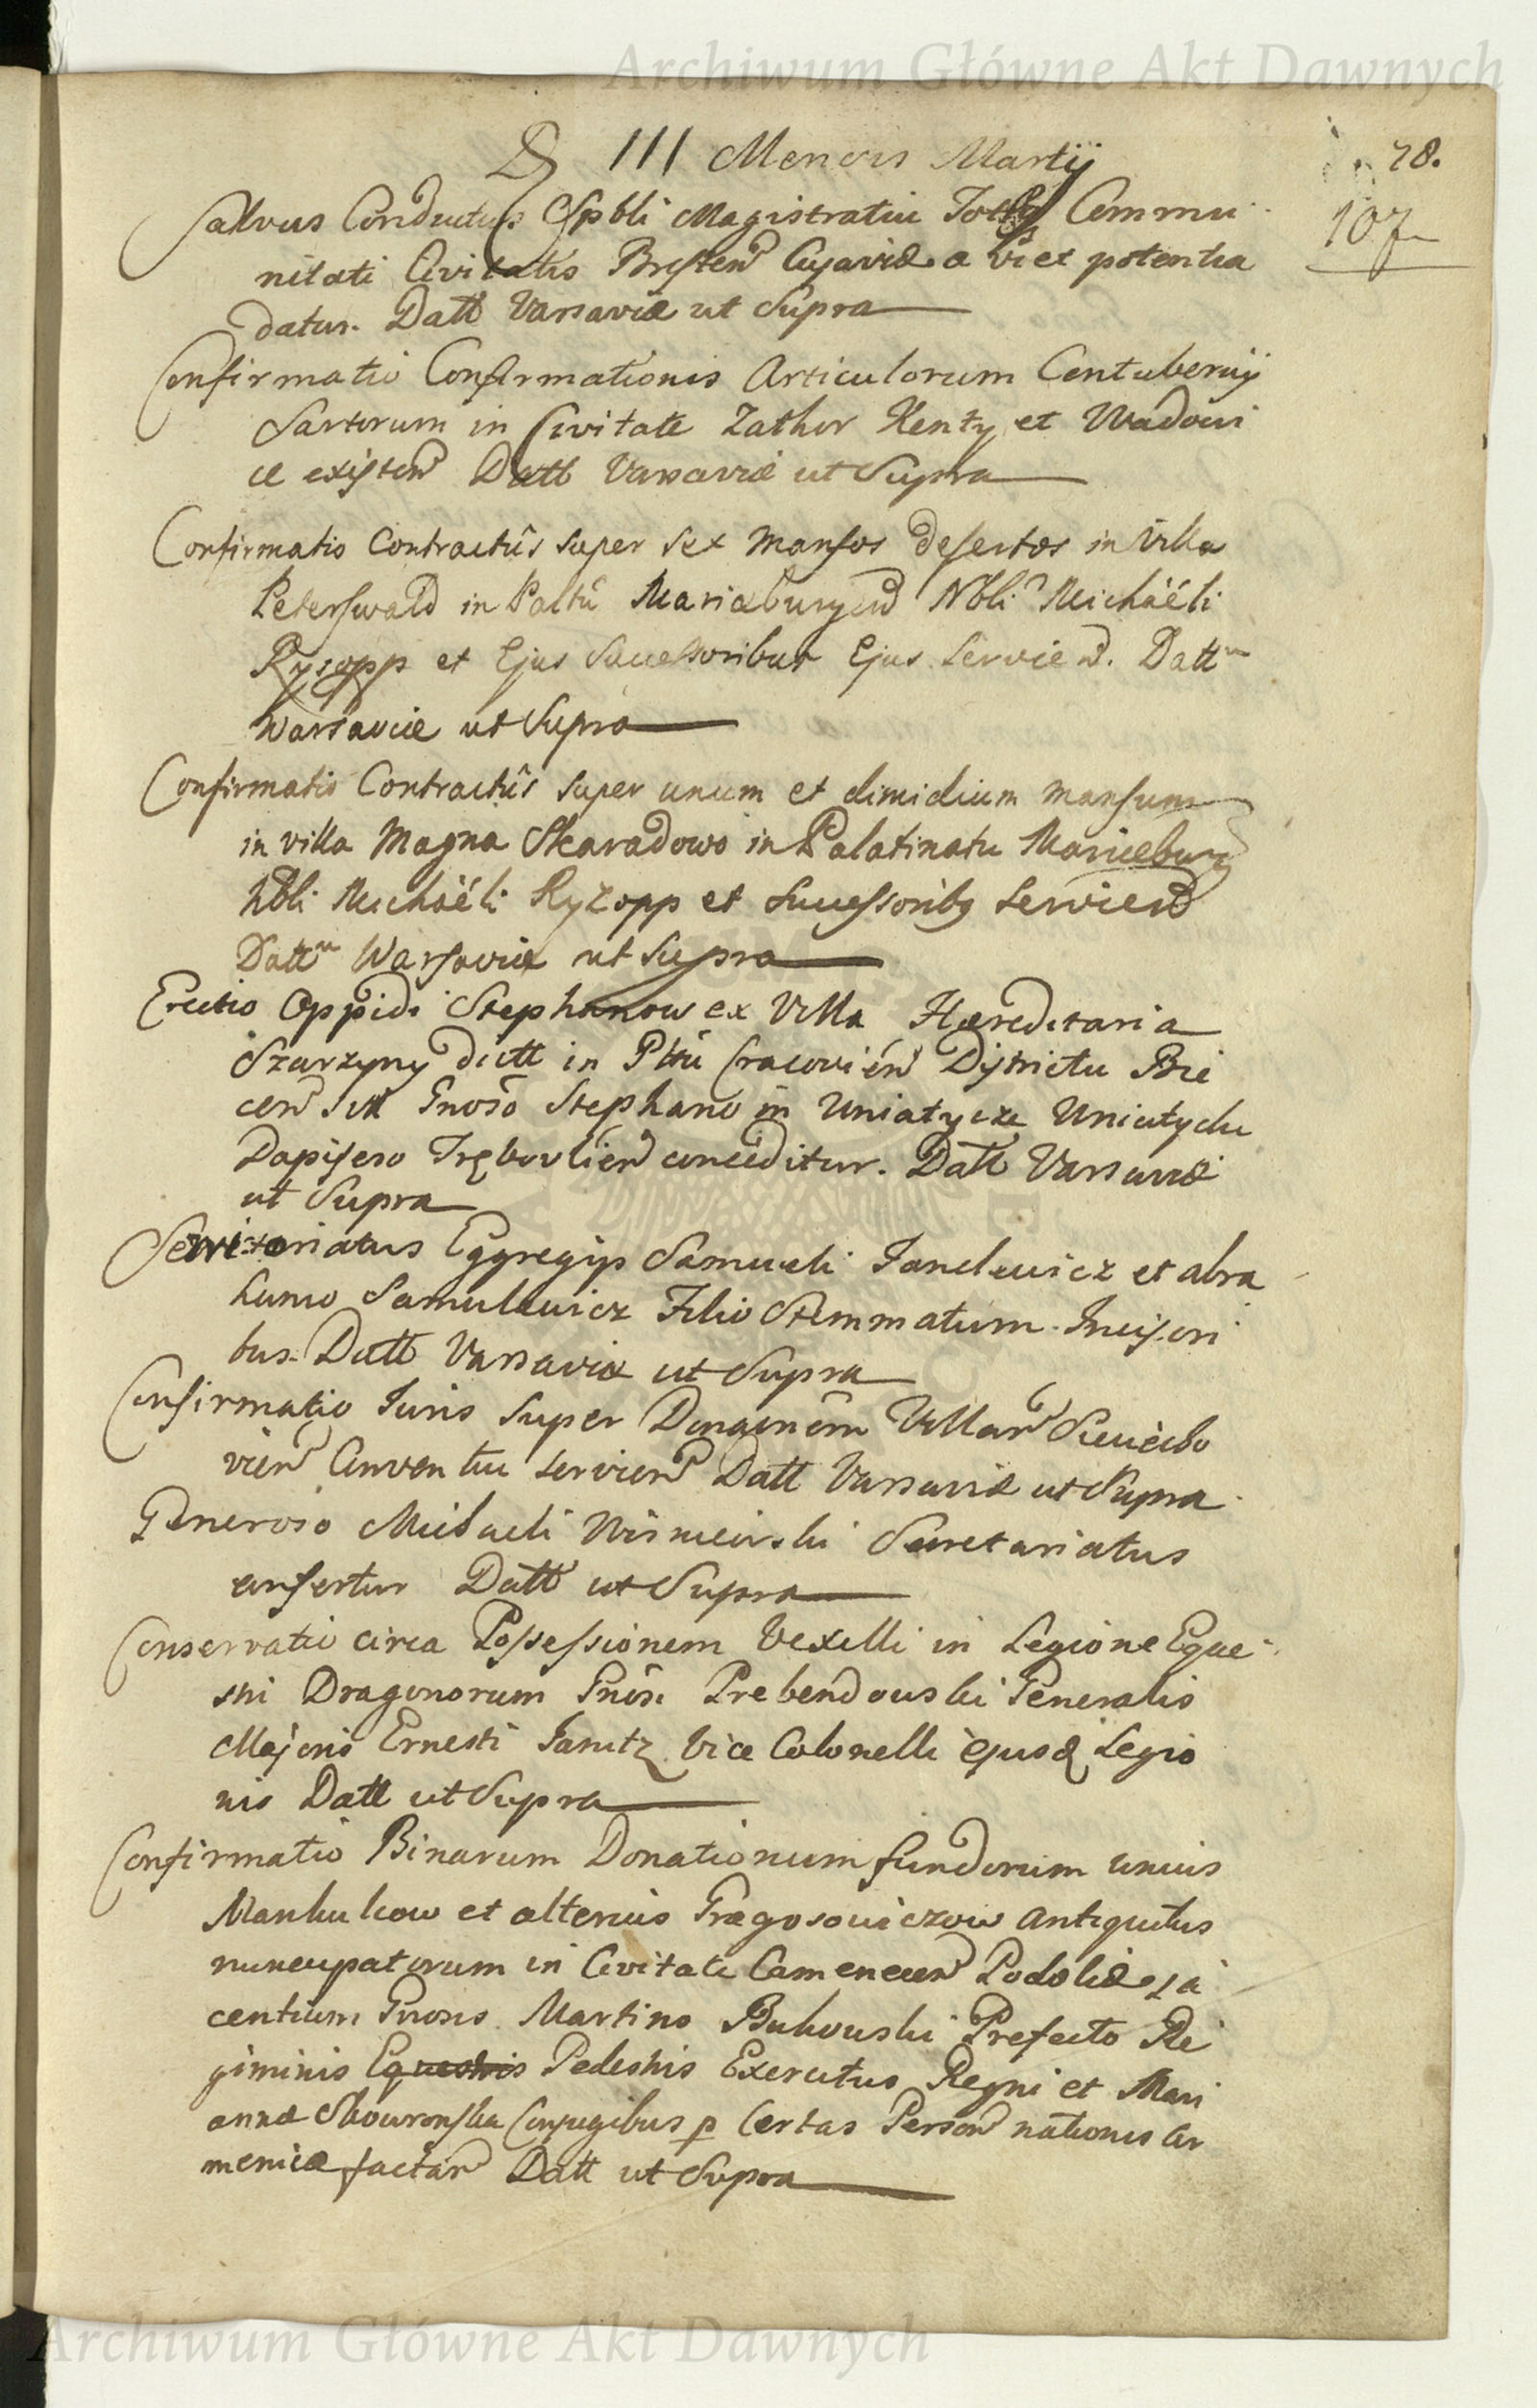 Archiwum Główne Akt Dawnych
D 111 Mensis Martij
78.
107
Salvus Conductus Spbli Magistratui Totiq Commu
nitati Civitatis Bresten Cujaviæ a vi et potentia
datur. Datt Varsaviæ ut Supra
Confirmatio Confirmationis Articulorum Contubernij
Sartorum in Civitate Zathor Kenty et Wadowi
ce existen Datt Varsaviæ ut Supra
Confirmatio Contractûs super sex Mansos desertos in Villa
Peterswald in Paltû Mariæburgen Nbli Michaëli
Ryzopp et Ejus Successoribus Ejus Servien. Dattm
Warsaviæ ut Supra
Confirmatio Contractûs super unum et dimidium mansum
in villa Magna Skaradowo in Palatinatu Mariæburg
Nbli Michaëli Ryzopp et Successoribq Servien
Dattm Warsaviæ ut Supra
Erectio Oppidi Stephanow ex Villa Hæreditaria
Szarzyny dictt in Pttû Cracovień Districtu Bie
cen Sitt Gnoso Stephano in Uniatycze Uniatycki
Dapifero Trębovlien conceditur. Datt Varsaviæ
ut Supra
Servitoriatus Eggregijs Samueli Jankewicz et abra
hamo Samulewicz Filio Stemmatum Incisori
bus. Datt Varsaviæ ut Supra
Confirmatio Juris super Donaõnem Villar
vien Conventui servien Datt Varsaviæ ut Supra
Generoso Michaeli Wisniewski Secretariatus
confertur Datt ut Supra
Conservatio circa Possessionem Vexilli in Legione Eque
stri Dragonorum Gnosi Prebendowski Generalis
Majoris Ernesti Janitz Vice Colonelli ejusd Legio
nis Datt ut Supra
Confirmatio Binarum Donationum fundorum unius
Mankukow et alterius Gregosowiczow Antiquitus
nuncupatorum in Civitate Camenecen Podoliæ ja
centium Gnosis Martino Bukowski Prefecto Re
giminis Equestris Pedestris Exercitus Regni et Mari
annæ Skowronska Conjugibus p Certas Person nationis Ar
meniæ factar Datt ut Supra
Archiwum Główne Akt Dawnych